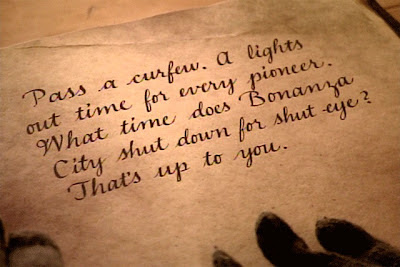 Pass a curfew. A lights
out time for every pioneer.
What time does Bonanza
City shut down for shut-eye?
That's up to you.